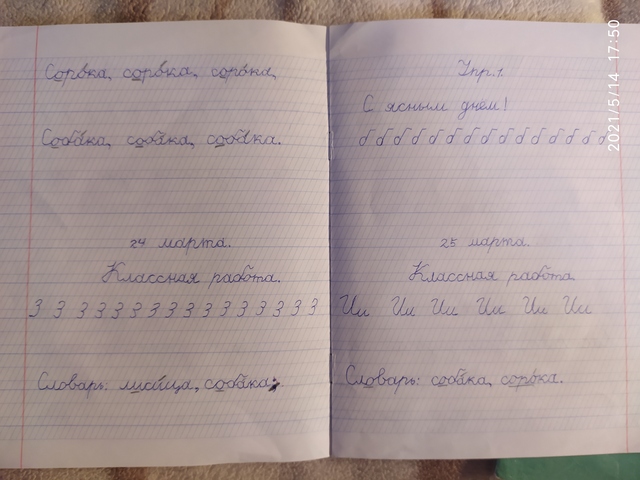 Сорока, сорока, сорока,
Собака, собака, собака.
24 марта.
Классная работа.
З З З З З З З З З З З З З З З З
Словарь: лисица, собака;
Упр.1.
С ясным днём!
б б б б б б б б б б б б б б б
25 марта.
Классная работа
Ии Ии Ии Ии Ии Ии
Словарь: собака, сорока.
2021/5/14 17:50